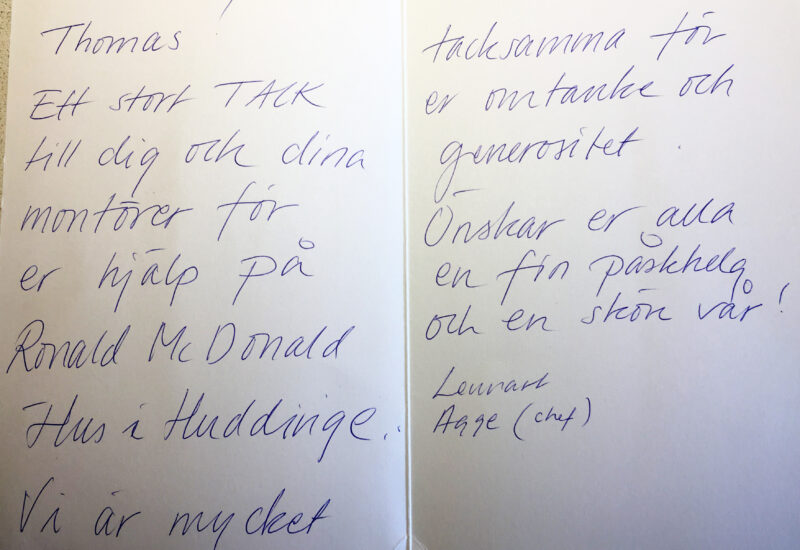 Thomas
Ett stort TACK
till dig och dina
montörer för
er hjälp på
Ronald McDonald
Hus i Huddinge.
Vi är mycket
tacksamma för
er omtanke och
generositet.
Önskar er alla
en fin påskhelg
och en skön vår!
Lennart
Agge (chef)